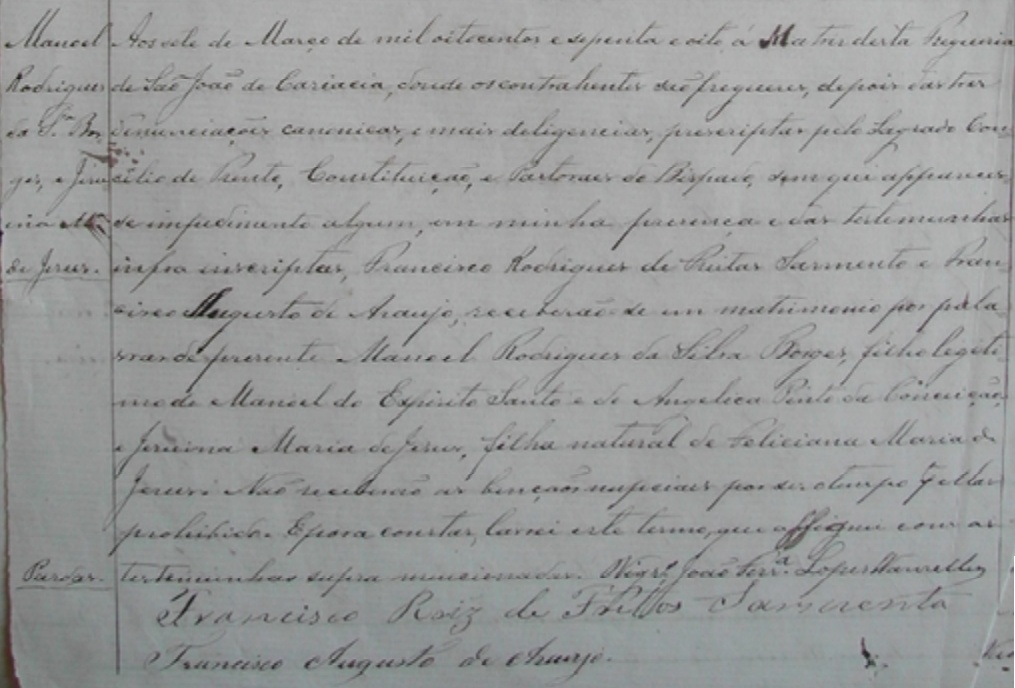 Manoel
Rodrigues
da S.ª Bor
ges, e Jesu
ina M.ª
de Jesus.
Pardos.
Aos sete de Março de mil oitocentos e setenta e oito á Matriz desta Freguezia
de São João de Cariacia, donde os contrahentes são freguezes, depois das tres
denunciações canonicas, e mais deligencias, prescriptas pelo Sagrado Con
cilio de Trento, Constituição, e Pastoraes do Bispado, sem que appareces
se impedimento algum, em minha presença e das testemunhas
infra inscriptas, Francisco Rodrigues de Freitas Sarmento e Fran
cisco Augusto de Araujo, receberão-se em matrimonio por pala
vras de presente Manoel Rodrigues da Silva Borges, filho legiti
mo de Manoel do Espirito Santo e de Angelica Pinto da Conceição,
e Jesuina Maria de Jesus, filha natural de Feliciana Maria de
Jesus. Não receberão as bençãos nupciaes por ser o tempo
prohibido. E para constar, lavrei este termo, que assigno com as
testemunhas supra mencionadas. Vigr.º João Ferr.ª Lopes
Francisco Roiz de Freitas Sarmento
Francisco Augusto de Araujo.